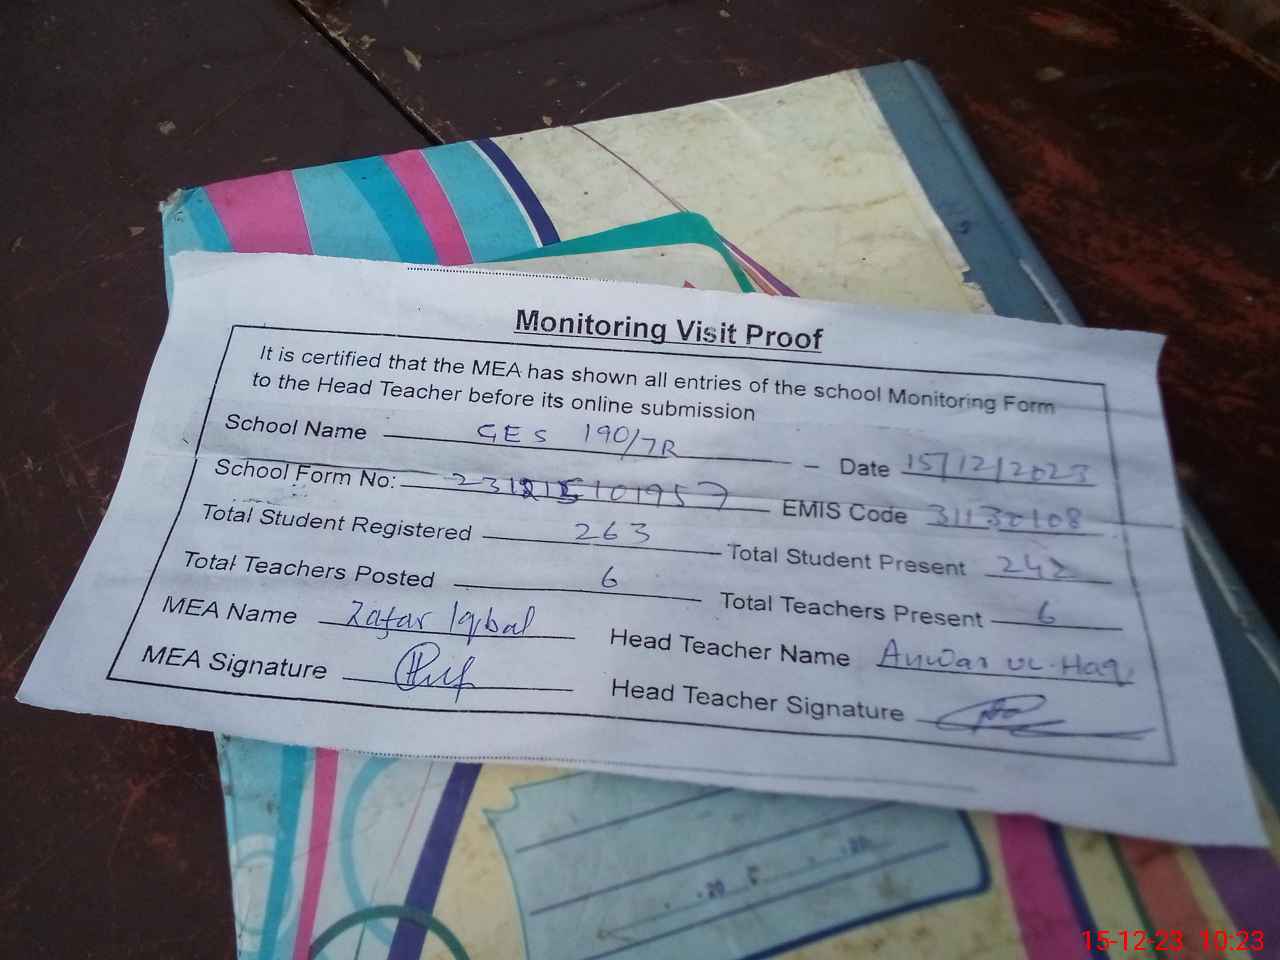 Monitoring Visit Proof
It is certified that the MEA has shown all entries of the school Monitoring Form
to the Head Teacher before its online submission
School Name GES 190/7R Date 15/12/2023
School Form No: EMIS Code 31130108
Total Student Registered 263 Total Student Present 242
Total Teachers Posted 6 Total Teachers Present 6
MEA Name Zafar Iqbal Head Teacher Name Anwar ul-Haq
MEA Signature Head Teacher Signature
15-12-23 10:23